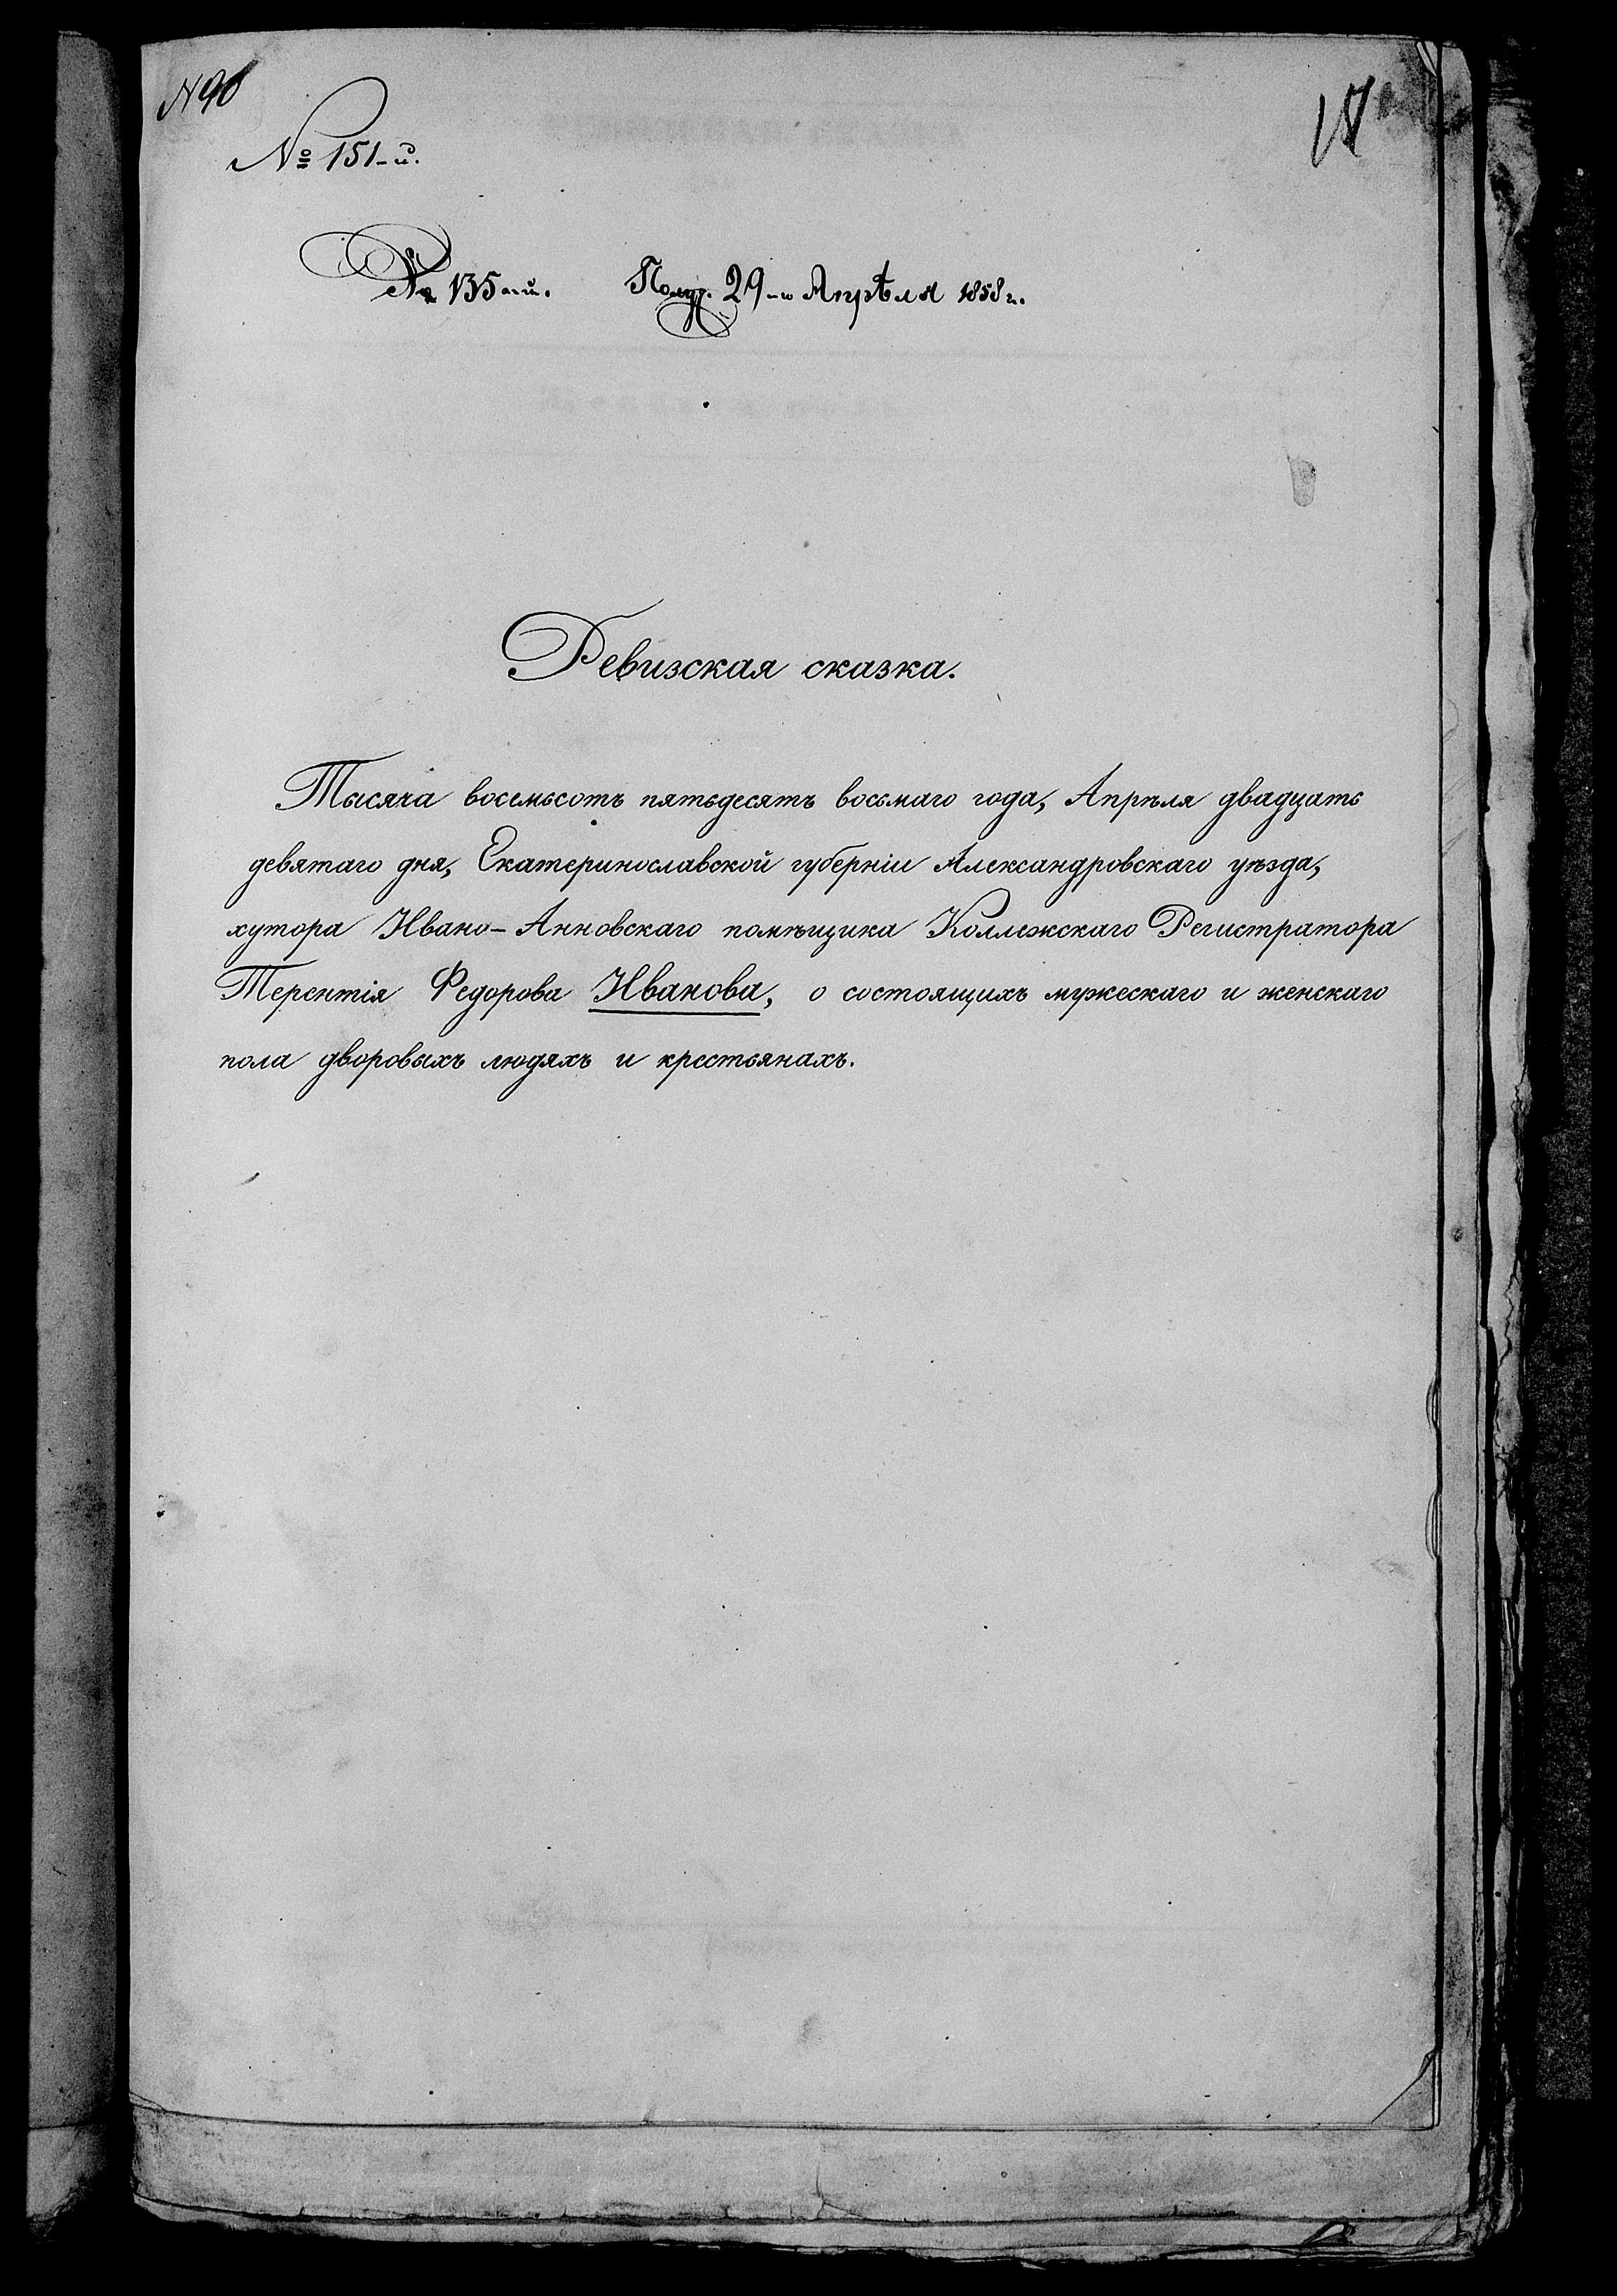 N 90
№ 151-й.
№ 135-й. Получ. 29-го Апрѣля 1858 г.
Ревизская сказка.
Тысяча восемьсотъ пятьдесятъ восьмаго года, Апрѣля двадцать
девятаго дня, Екатеринославской губерніи Александровскаго уѣзда,
хутора Ивано-Анновскаго помѣщика Коллежскаго Регистратора
Терентія Федорова Иванова, о состоящихъ мужескаго и женскаго
пола дворовыхъ людяхъ и крестьянахъ.